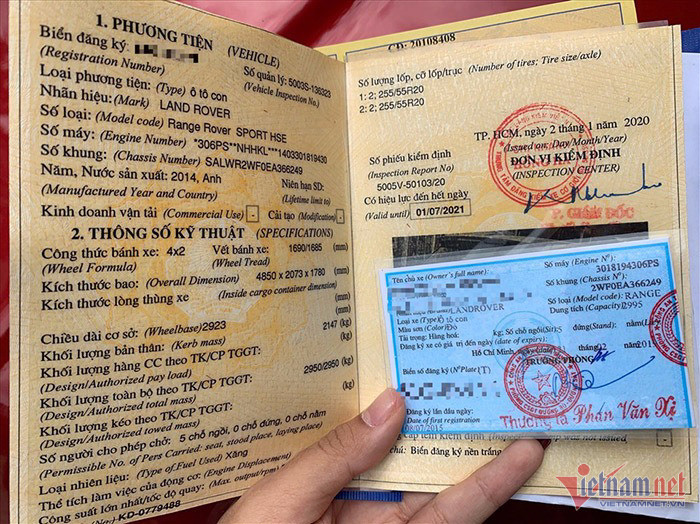 1. PHƯƠNG TIỆN (VEHICLE)
Biển đăng ký:
(Registration Number)
Số quản lý: 5003S-136323
(Vehicle Inspection No.)
Loại phương tiện: (Type) ô tô con
Nhãn hiệu: (Mark) LAND ROVER
Số loại: (Model code) Range Rover SPORT HSE
Số máy: (Engine Number) *306PS**NHHKL***1403301819430
Số khung: (Chassis Number) SALWR2WF0EA366249
Năm, Nước sản xuất: 2014, Anh
(Manufactured Year and Country)
Niên hạn SD:
(Lifetime limit to)
Kinh doanh vận tải (Commercial Use) - Cải tạo (Modification) -
2. THÔNG SỐ KỸ THUẬT (SPECIFICATIONS)
Công thức bánh xe: 4x2 Vết bánh xe: 1690/1685 (mm)
(Wheel Formula) (Wheel Tread)
Kích thước bao: (Overall Dimension) 4850 x 2073 x 1780 (mm)
Kích thước lòng thùng xe (Inside cargo container dimension)
(mm)
Chiều dài cơ sở: (Wheelbase) 2923 (mm)
Khối lượng bản thân: (Kerb mass) 2147 (kg)
Khối lượng hàng CC theo TK/CP TGGT:
(Design/Authorized pay load) (kg)
Khối lượng toàn bộ theo TK/CP TGGT: 2950/2950 (kg)
(Design/Authorized total mass)
Khối lượng kéo theo TK/CP TGGT: (kg)
(Design/Authorized towed mass)
Số người cho phép chở: 5 chỗ ngồi, 0 chỗ đứng, 0 chỗ nằm
(Permissible No. of Pers Carried: seat, stood place, laying place)
Loại nhiên liệu: (Type of Fuel Used) Xăng
Thể tích làm việc của động cơ: (Engine Displacement)
Công suất lớn nhất/tốc độ quay: (Max. output/rpm)
No: KD-0779488
CD: 20108408
Số lượng lốp, cỡ lốp/trục (Number of tires; Tire size/axle)
1: 2; 255/55R20
2: 2; 255/55R20
TP. HCM, ngày 2 tháng 1 năm 2020
(Issued on: Day/Month/Year)
Số phiếu kiểm định
(Inspection Report No)
5005V-50103/20
ĐƠN VỊ KIỂM ĐỊNH
(INSPECTION CENTER)
Có hiệu lực đến hết ngày
(Valid until) 01/07/2021
P. GIÁM ĐỐC
Tên chủ xe (Owner's full name):
Số máy (Engine N°):
3018194306PS
Số khung (Chassis N°):
2WF0EA366249
LANDROVER
Số loại (Model code): RANGE
Loại xe (Type) Ô tô con
Dung tích (Capacity) 2995
Màu sơn (Color) Đỏ
Tải trọng: Hàng hoá: kg; Số chỗ ngồi(Sit): đứng(Stand):
Đăng ký xe có giá trị đến ngày (date of expiry)
Hồ Chí Minh
TRƯỞNG PHÒNG
Biển số đăng ký (N°Plate)(T)
Đăng ký lần đầu ngày:
Date of first registration
/07/2015
Thượng tá Phan Văn Xi
cấp tem kiểm định (Inspection
was not issued)
chú: Biển đăng ký nền trắng
Vietnam.net
VIETNAMNET.VN